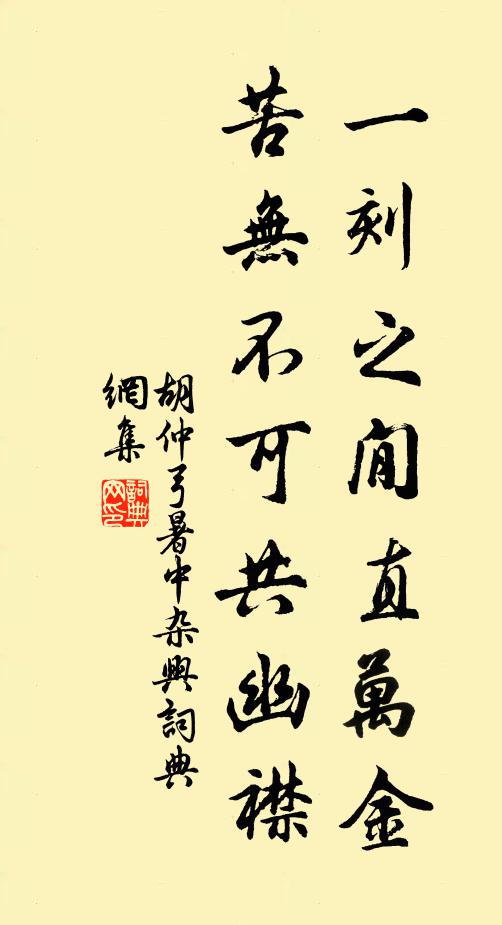 一刻之間直萬金
苦無不可共幽襟
胡仲弓暑中杂興詞典
網集
詞典
网印